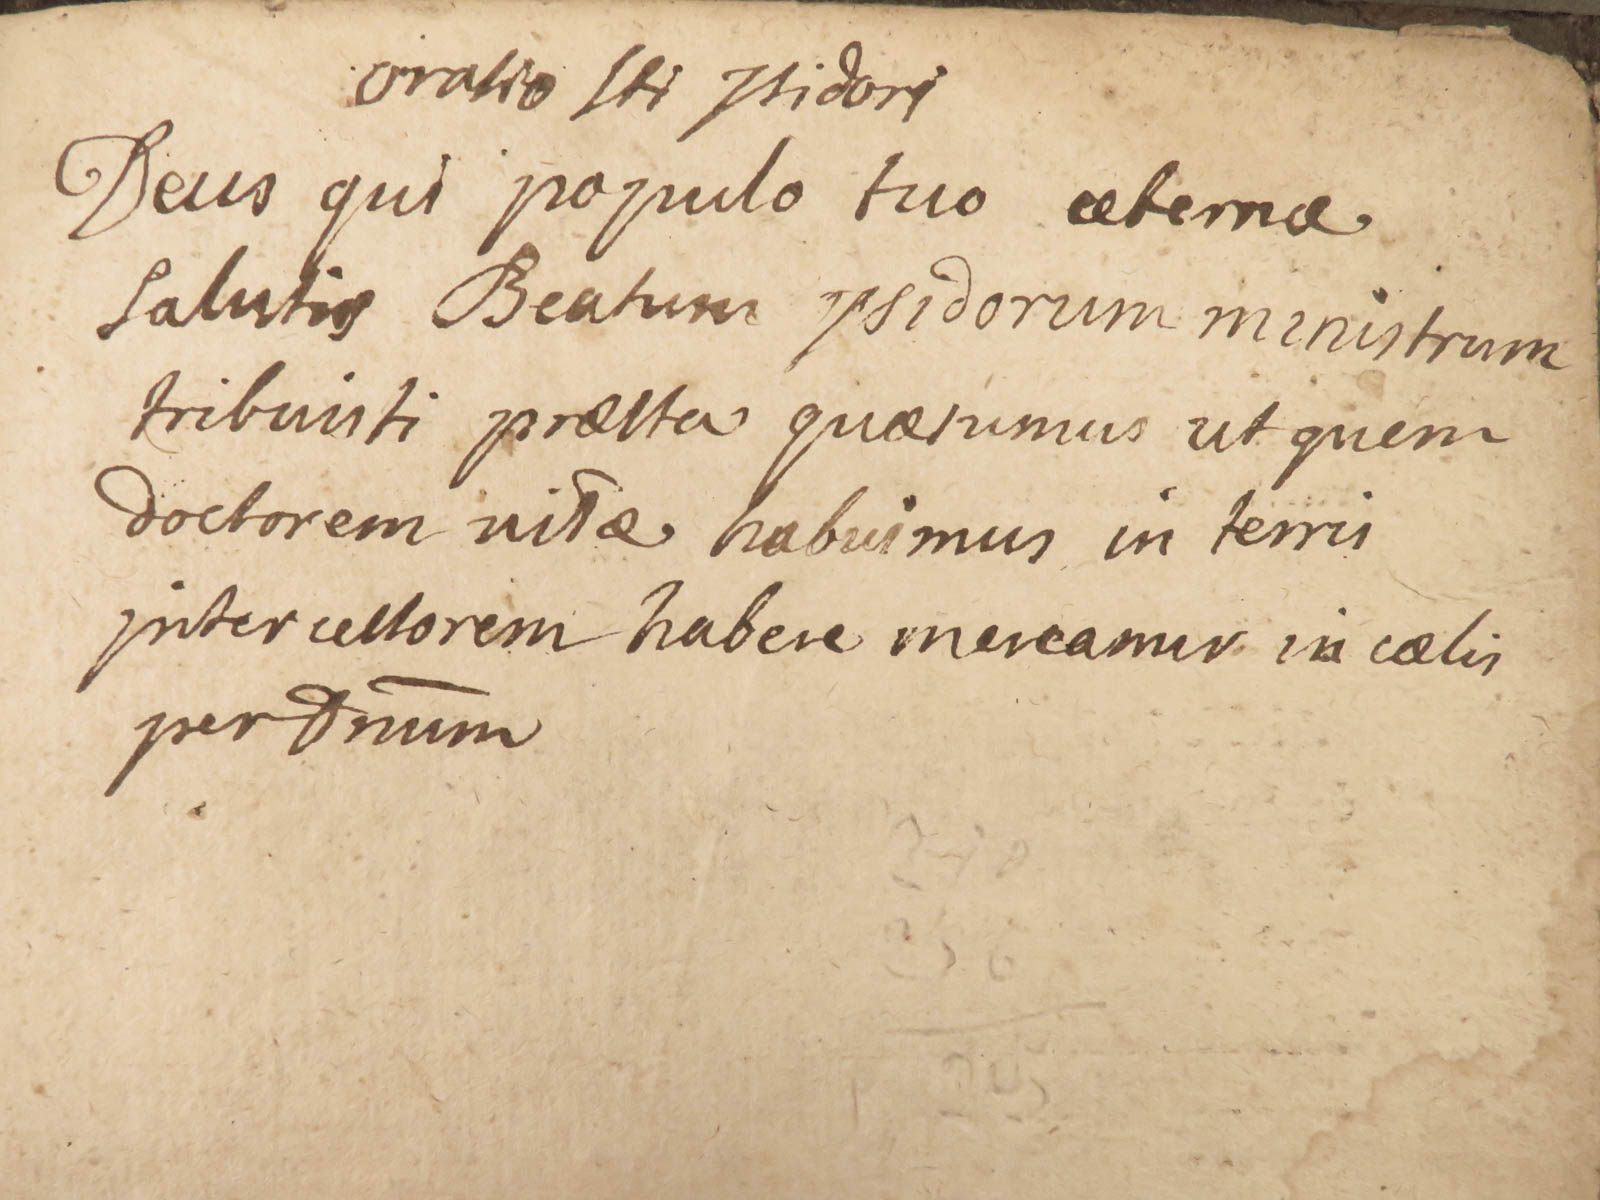 oratio Sti ysidori
Deus qui populo tuo æternæ
salutis Beatum ysidorum ministrum
tribuisti præsta quæsumus ut quem
doctorem vitæ habuimus in terris
intercessorem habere mereamur in cælis
per Dnum